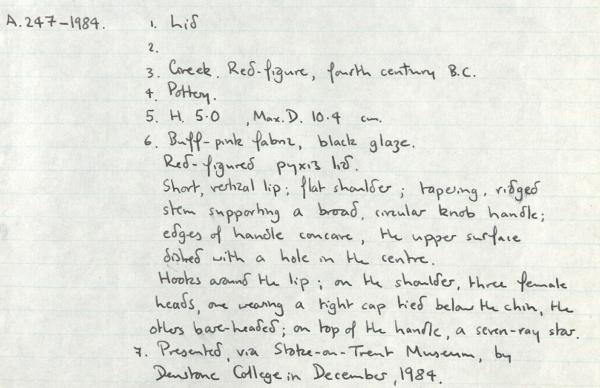 A.247-1984. 1. Lid
2.
3. Greek. Red-figure, fourth century B.C.
4. Pottery.
5. H. 5.0 , Max. D. 10.4 cm.
6. Buff-pink fabric, black glaze.
Red-figured pyxis lid.
Short, vertical lip; flat shoulder; tapering, ridged
stem supporting a broad, circular knob handle;
edges of handle concave, the upper surface
dished with a hole in the centre.
Hooks around the lip; on the shoulder, three female
heads, one wearing a tight cap tied below the chin, the
others bare-headed; on top of the handle, a seven-ray star.
7. Presented, via Stoke-on-Trent Museum, by
Denstone College in December, 1984.